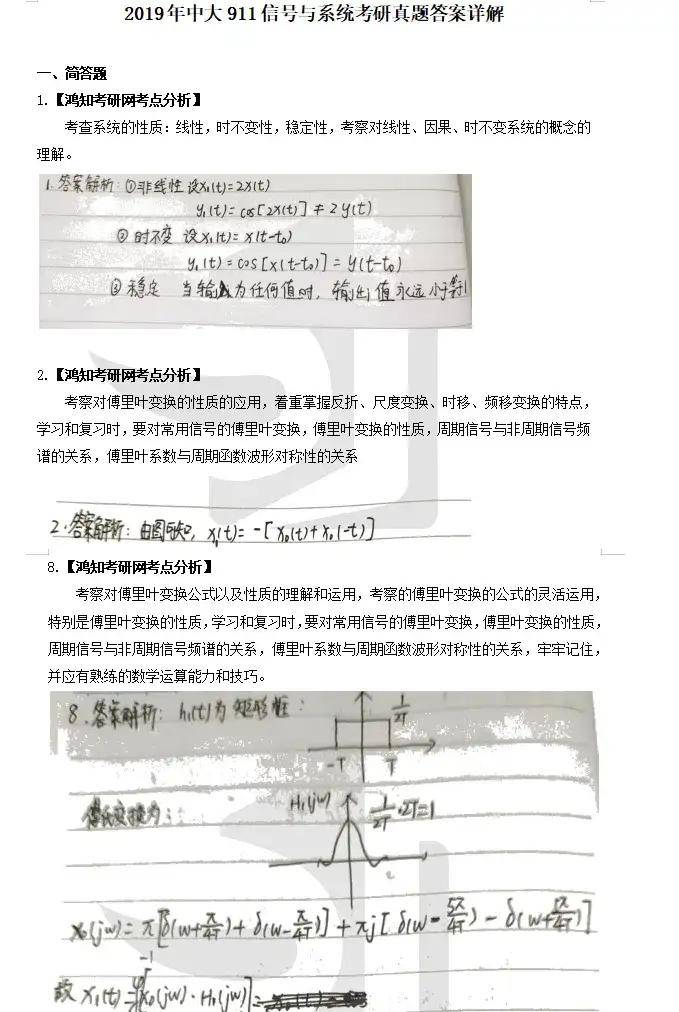 2019年中大911信号与系统考研真题答案详解
一、简答题
1.【鸿知考研网考点分析】
考查系统的性质：线性，时不变性，稳定性，考察对线性、因果、时不变系统的概念的
理解。
1.答案解析：①非线性 设x₁(t)=2x(t)
y₁(t)=cos[2x(t)]≠2y(t)
②时不变 设x₁(t)=x(t-t₀)
y₁(t)=cos[x(t-t₀)]=y(t-t₀)
③稳定 当输入为任何值时，输出值永远小于等于1
2.【鸿知考研网考点分析】
考察对傅里叶变换的性质的应用，着重掌握反折、尺度变换、时移、频移变换的特点，
学习和复习时，要对常用信号的傅里叶变换，傅里叶变换的性质，周期信号与非周期信号频
谱的关系，傅里叶系数与周期函数波形对称性的关系
2.答案解析：由图可知，x₁(t)=-[x₀(t)+x₀(-t)]
8.【鸿知考研网考点分析】
考察对傅里叶变换公式以及性质的理解和运用，考察的傅里叶变换的公式的灵活运用，
特别是傅里叶变换的性质，学习和复习时，要对常用信号的傅里叶变换，傅里叶变换的性质，
周期信号与非周期信号频谱的关系，傅里叶系数与周期函数波形对称性的关系，牢牢记住，
并应有熟练的数学运算能力和技巧。
8.答案解析：h₁(t)为矩形框：
1/2T
-T T
傅氏变换为：
H₁(jw) 1/2T·2T=1
x₀(jw)=π[δ(w+π/4T)+δ(w-π/4T)]+πj[δ(w-5π/4T)-δ(w+5π/4T)]
故 x₁(t)=⁻¹[x₀(jw)·H₁(jw)]=